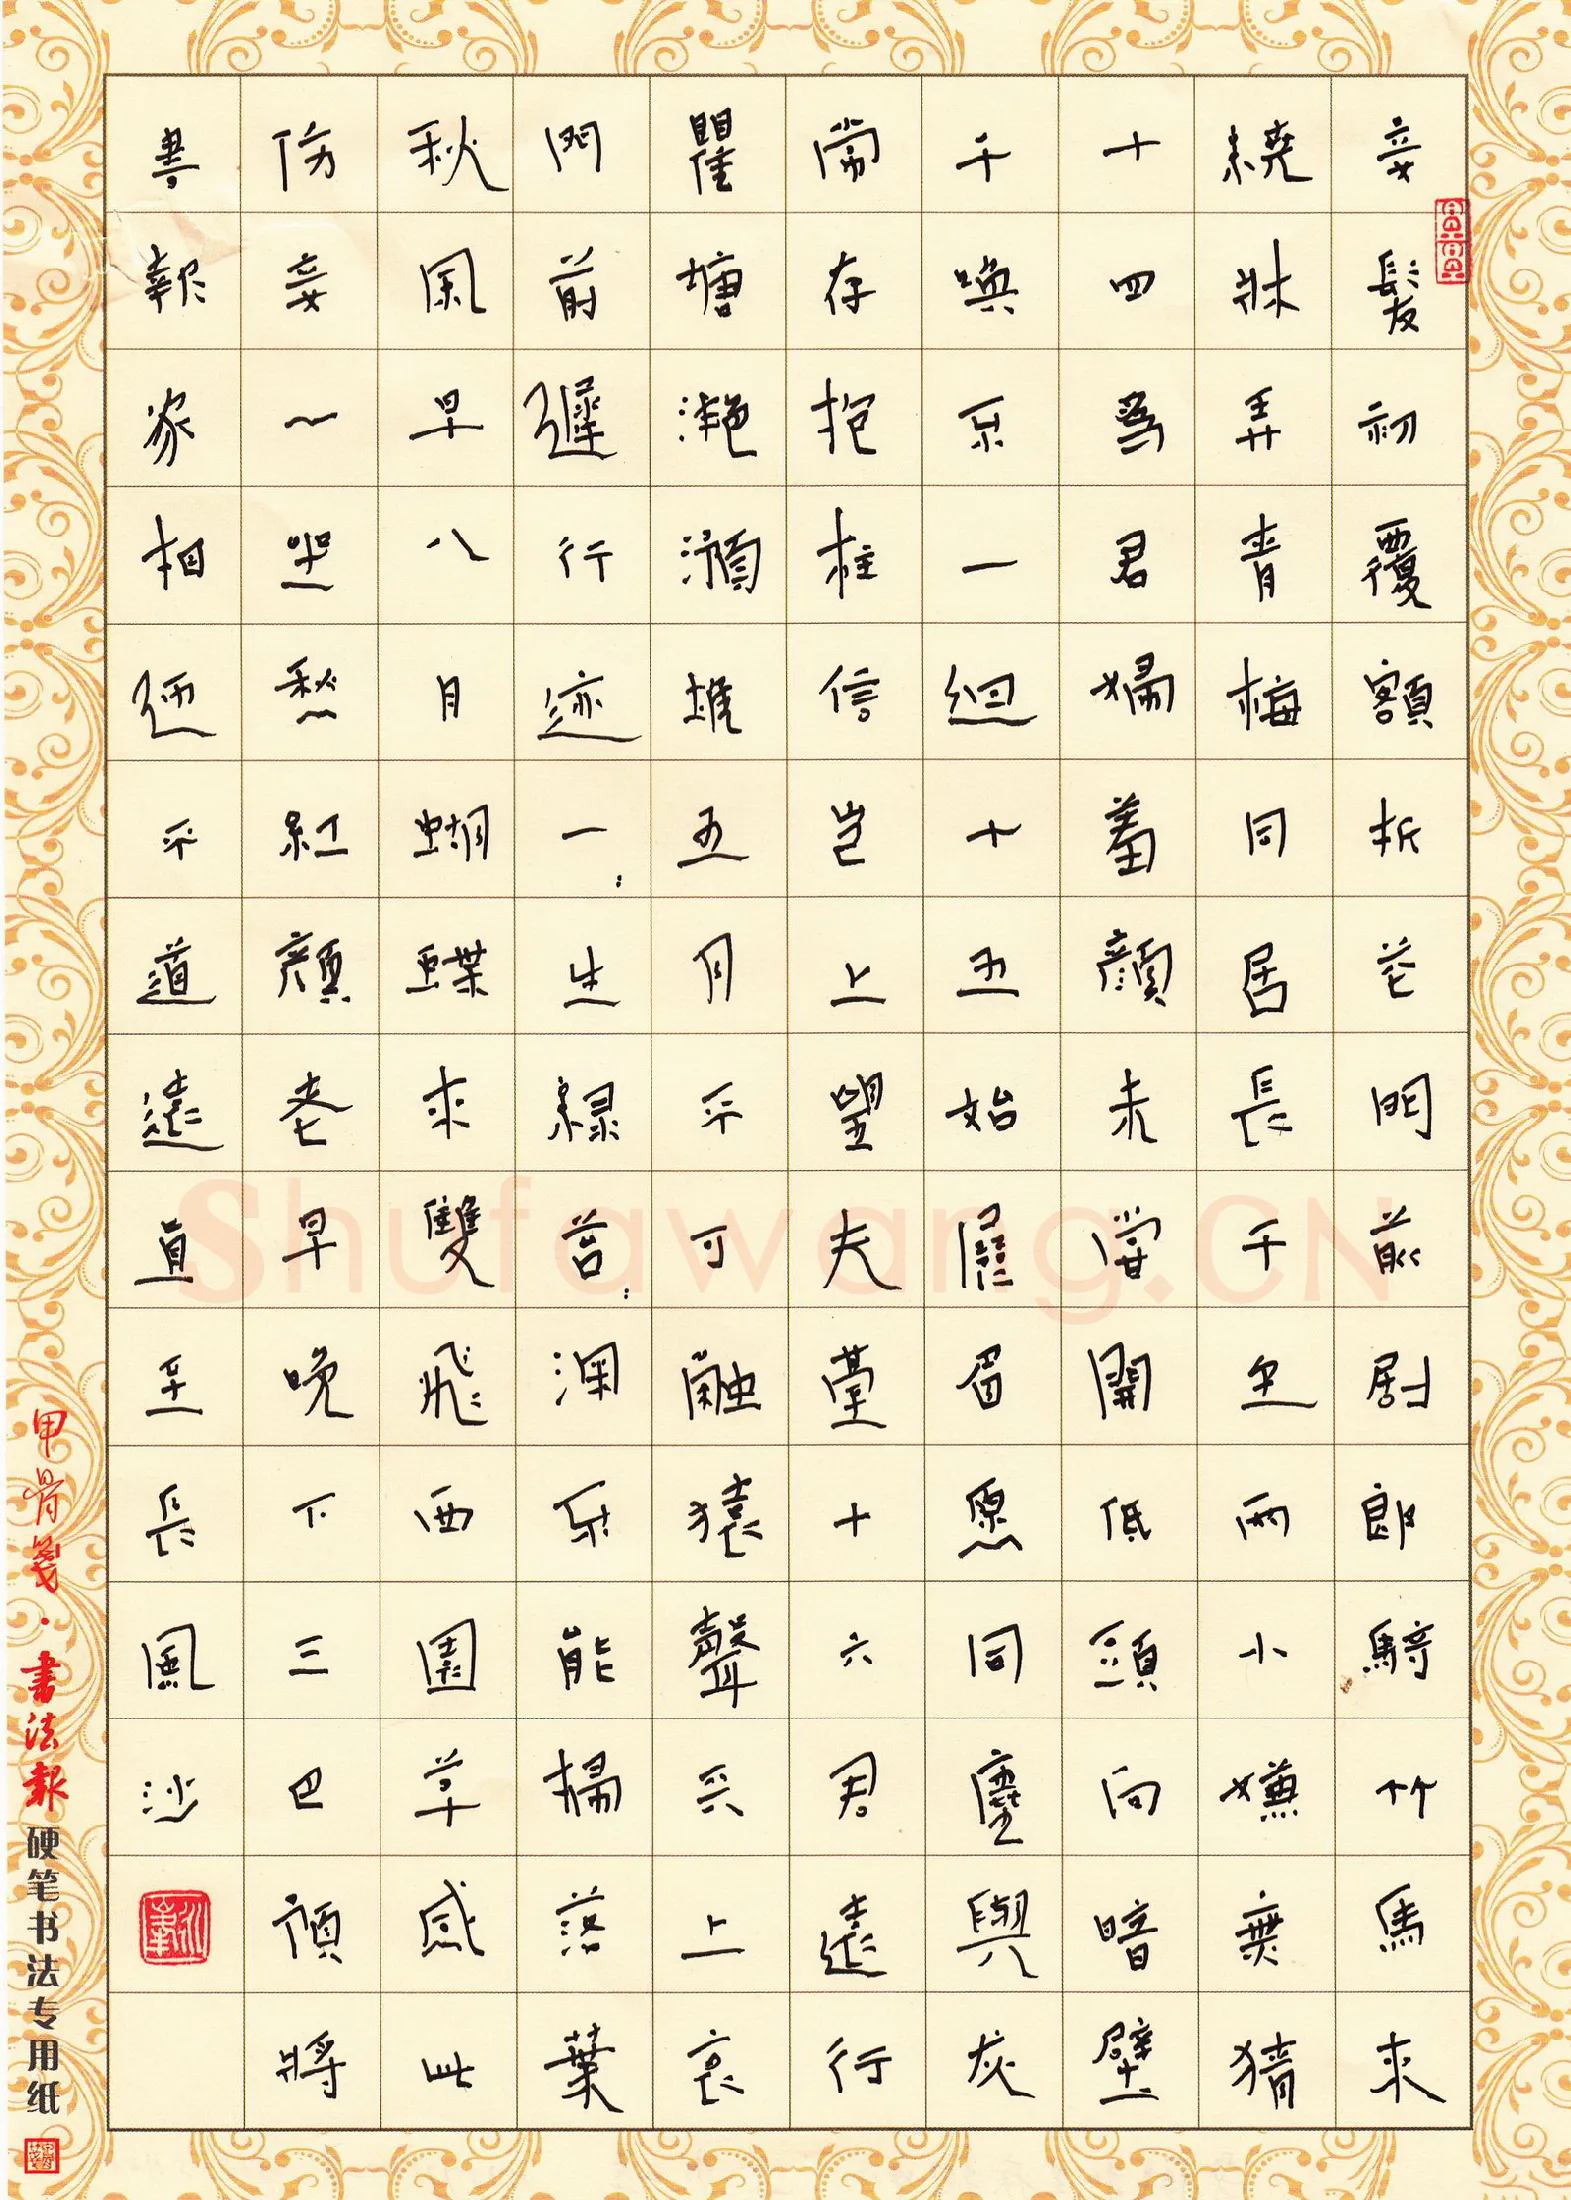 妾髮初覆額折花門前劇郎騎竹馬來
繞牀弄青梅同居長干里兩小嫌無猜
十四爲君婦羞顏未嘗開低頭向暗壁
千喚不一迴十五始展眉願同塵與灰
常存抱柱信豈上望夫臺十六君遠行
瞿塘灧澦堆五月不可觸猿聲天上哀
門前遲行迹一:生綠苔:深不能掃落葉
秋風早八月蝴蝶來雙飛西園草感此
傷妾心坐愁紅顏老早晚下三巴預將
書報家相迎不道遠直至長風沙
甲骨箋·書法報硬笔书法专用纸
Shufawang.CN